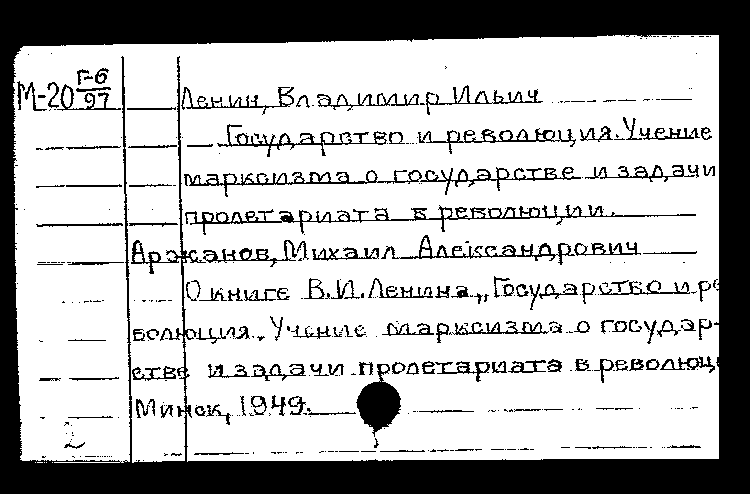 М-20 Г-6/97
Ленин, Владимир Ильич
Государство и революция. Учение
марксизма о государстве и задачи
пролетариата в революции.
Аржанов, Михаил Александрович
О книге В.И. Ленина „Государство и ре
волюция. Учение марксизма о государ-
стве и задачи пролетариата в революц
Минск, 1949.
2